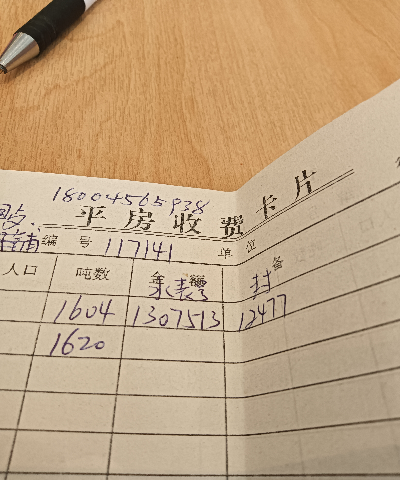 18004565938
平房收费卡片
编号 117141 单位
人口 吨数 备
封
1604 1307513 12477
1620